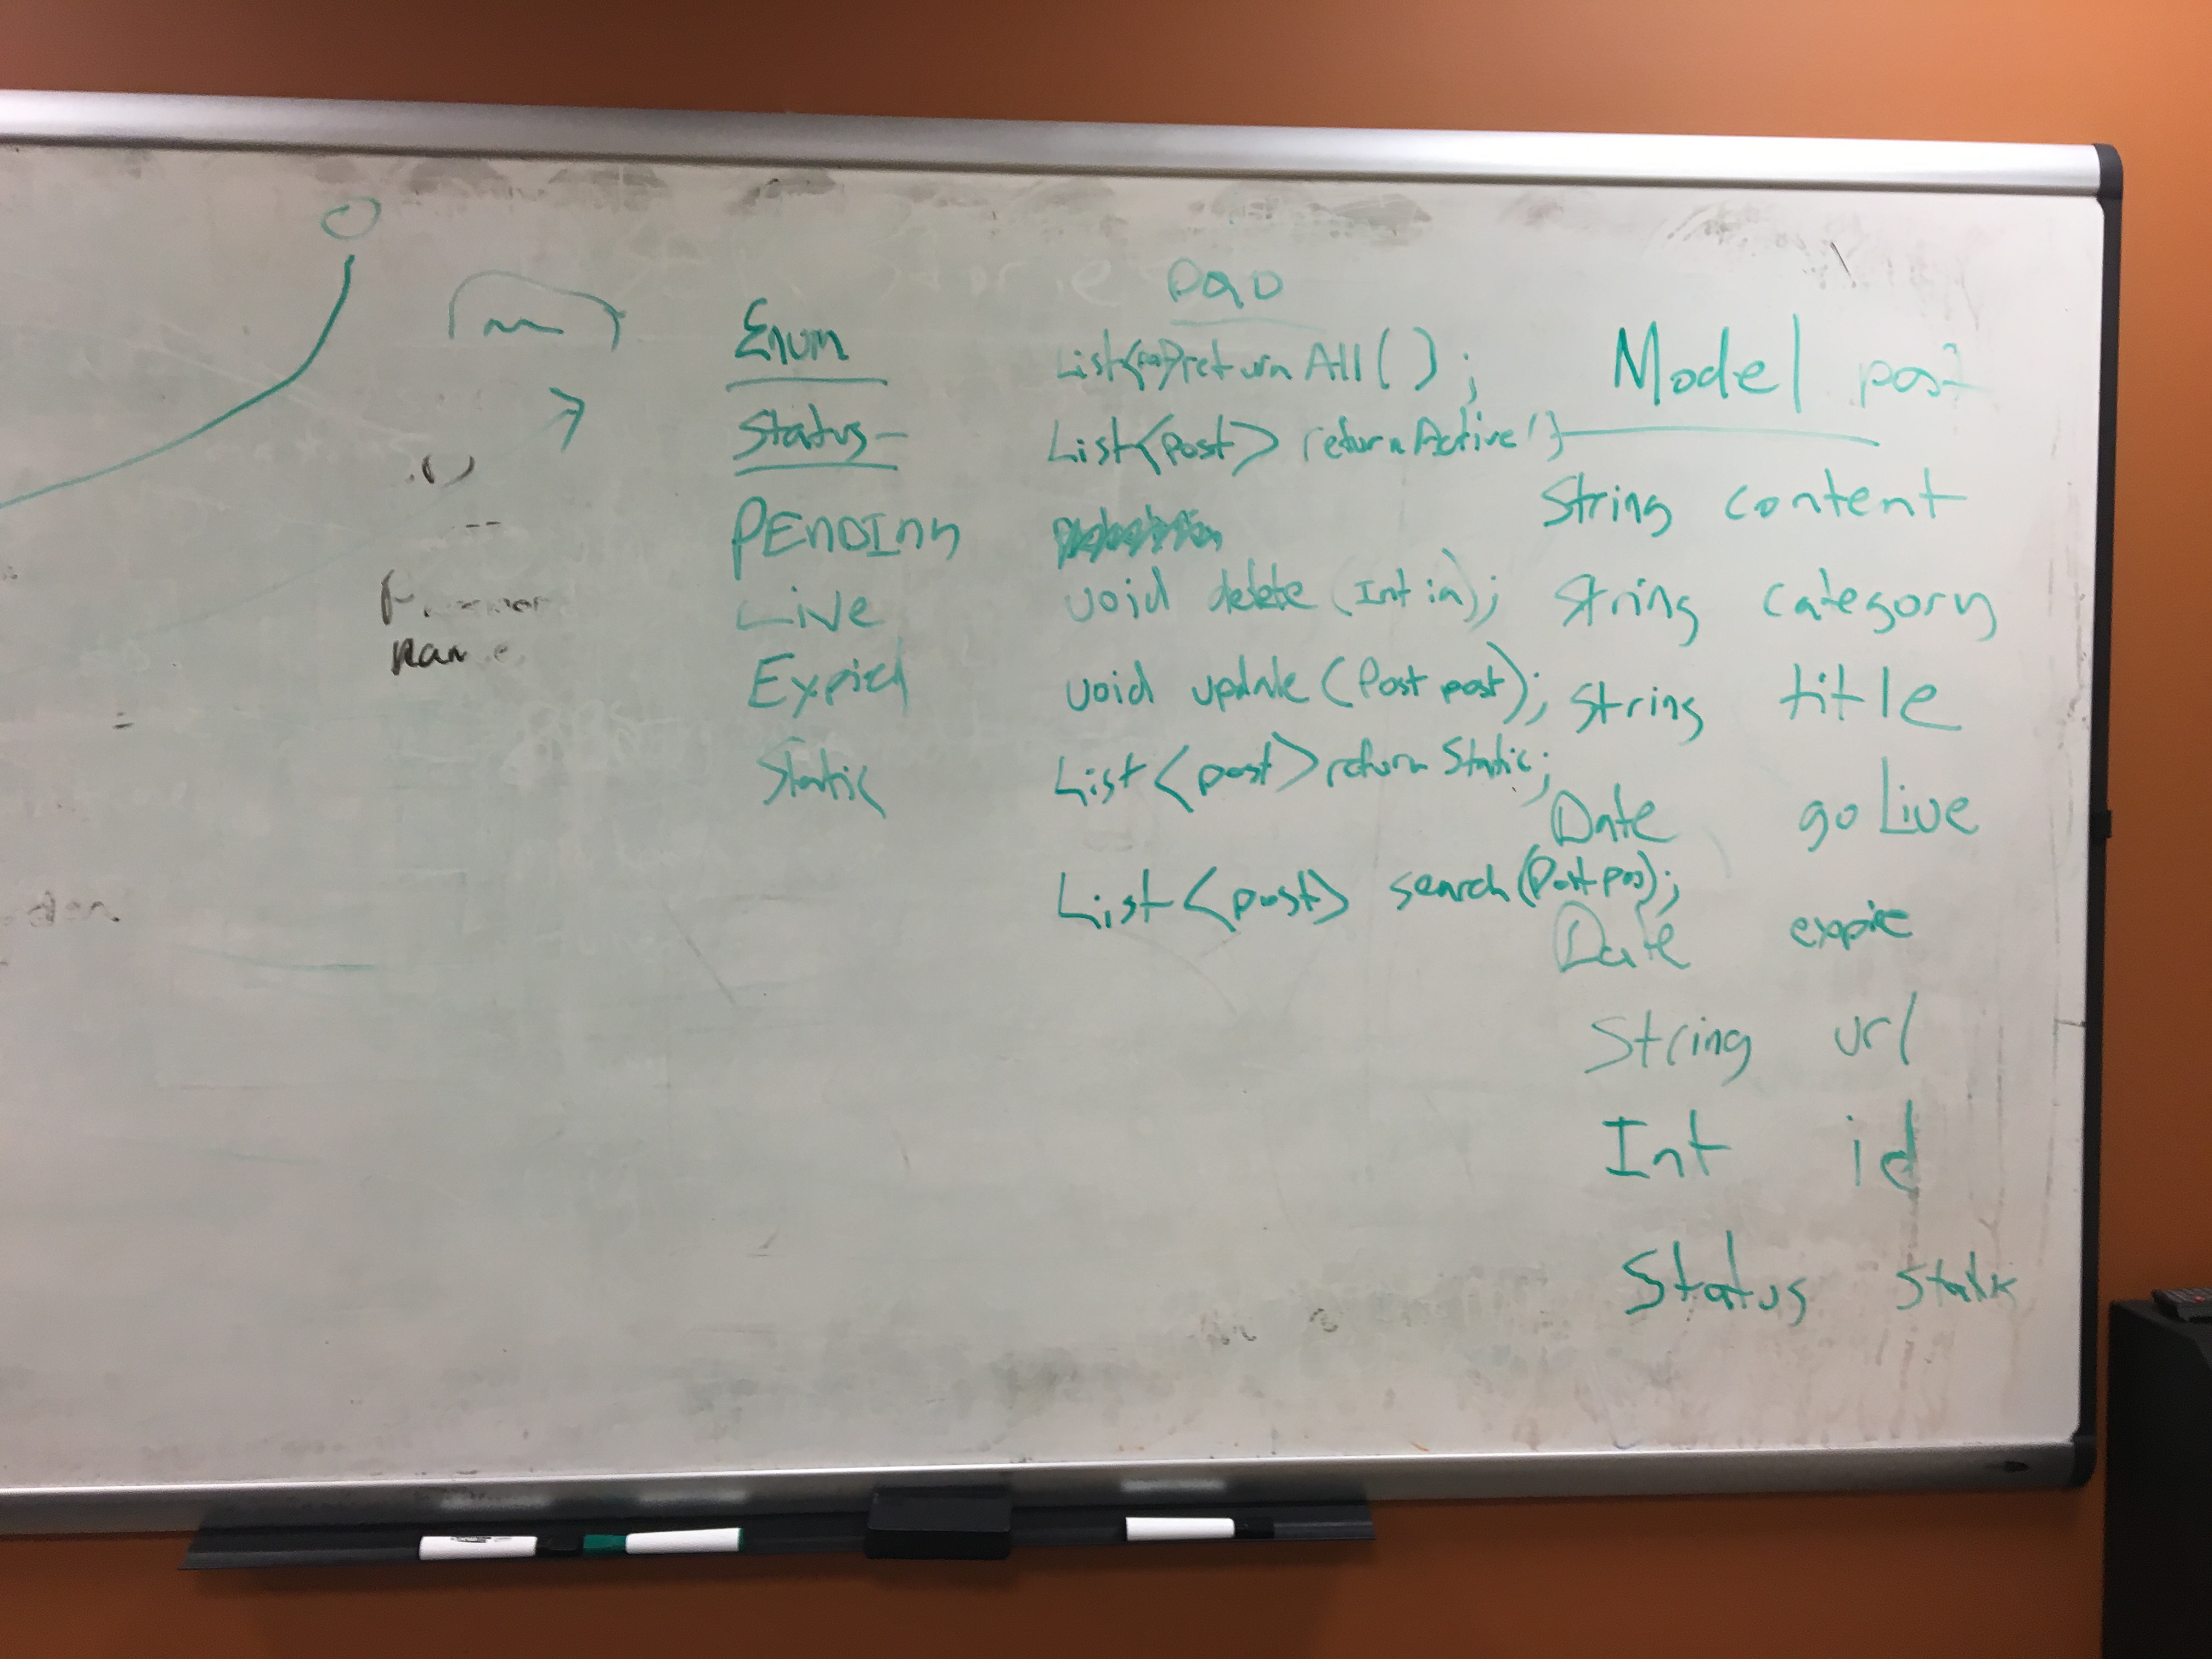 Enum
Status
PENDING
Live
Expied
Static
DAO
List<post>returnAll();
List<post> returnActive()
void delete (Int id);
void update (Post post);
List<post>return Static;
List<post> search(Post pos);
Model post
String content
String category
String title
Date goLive
Date expire
String url
Int id
Status status
name